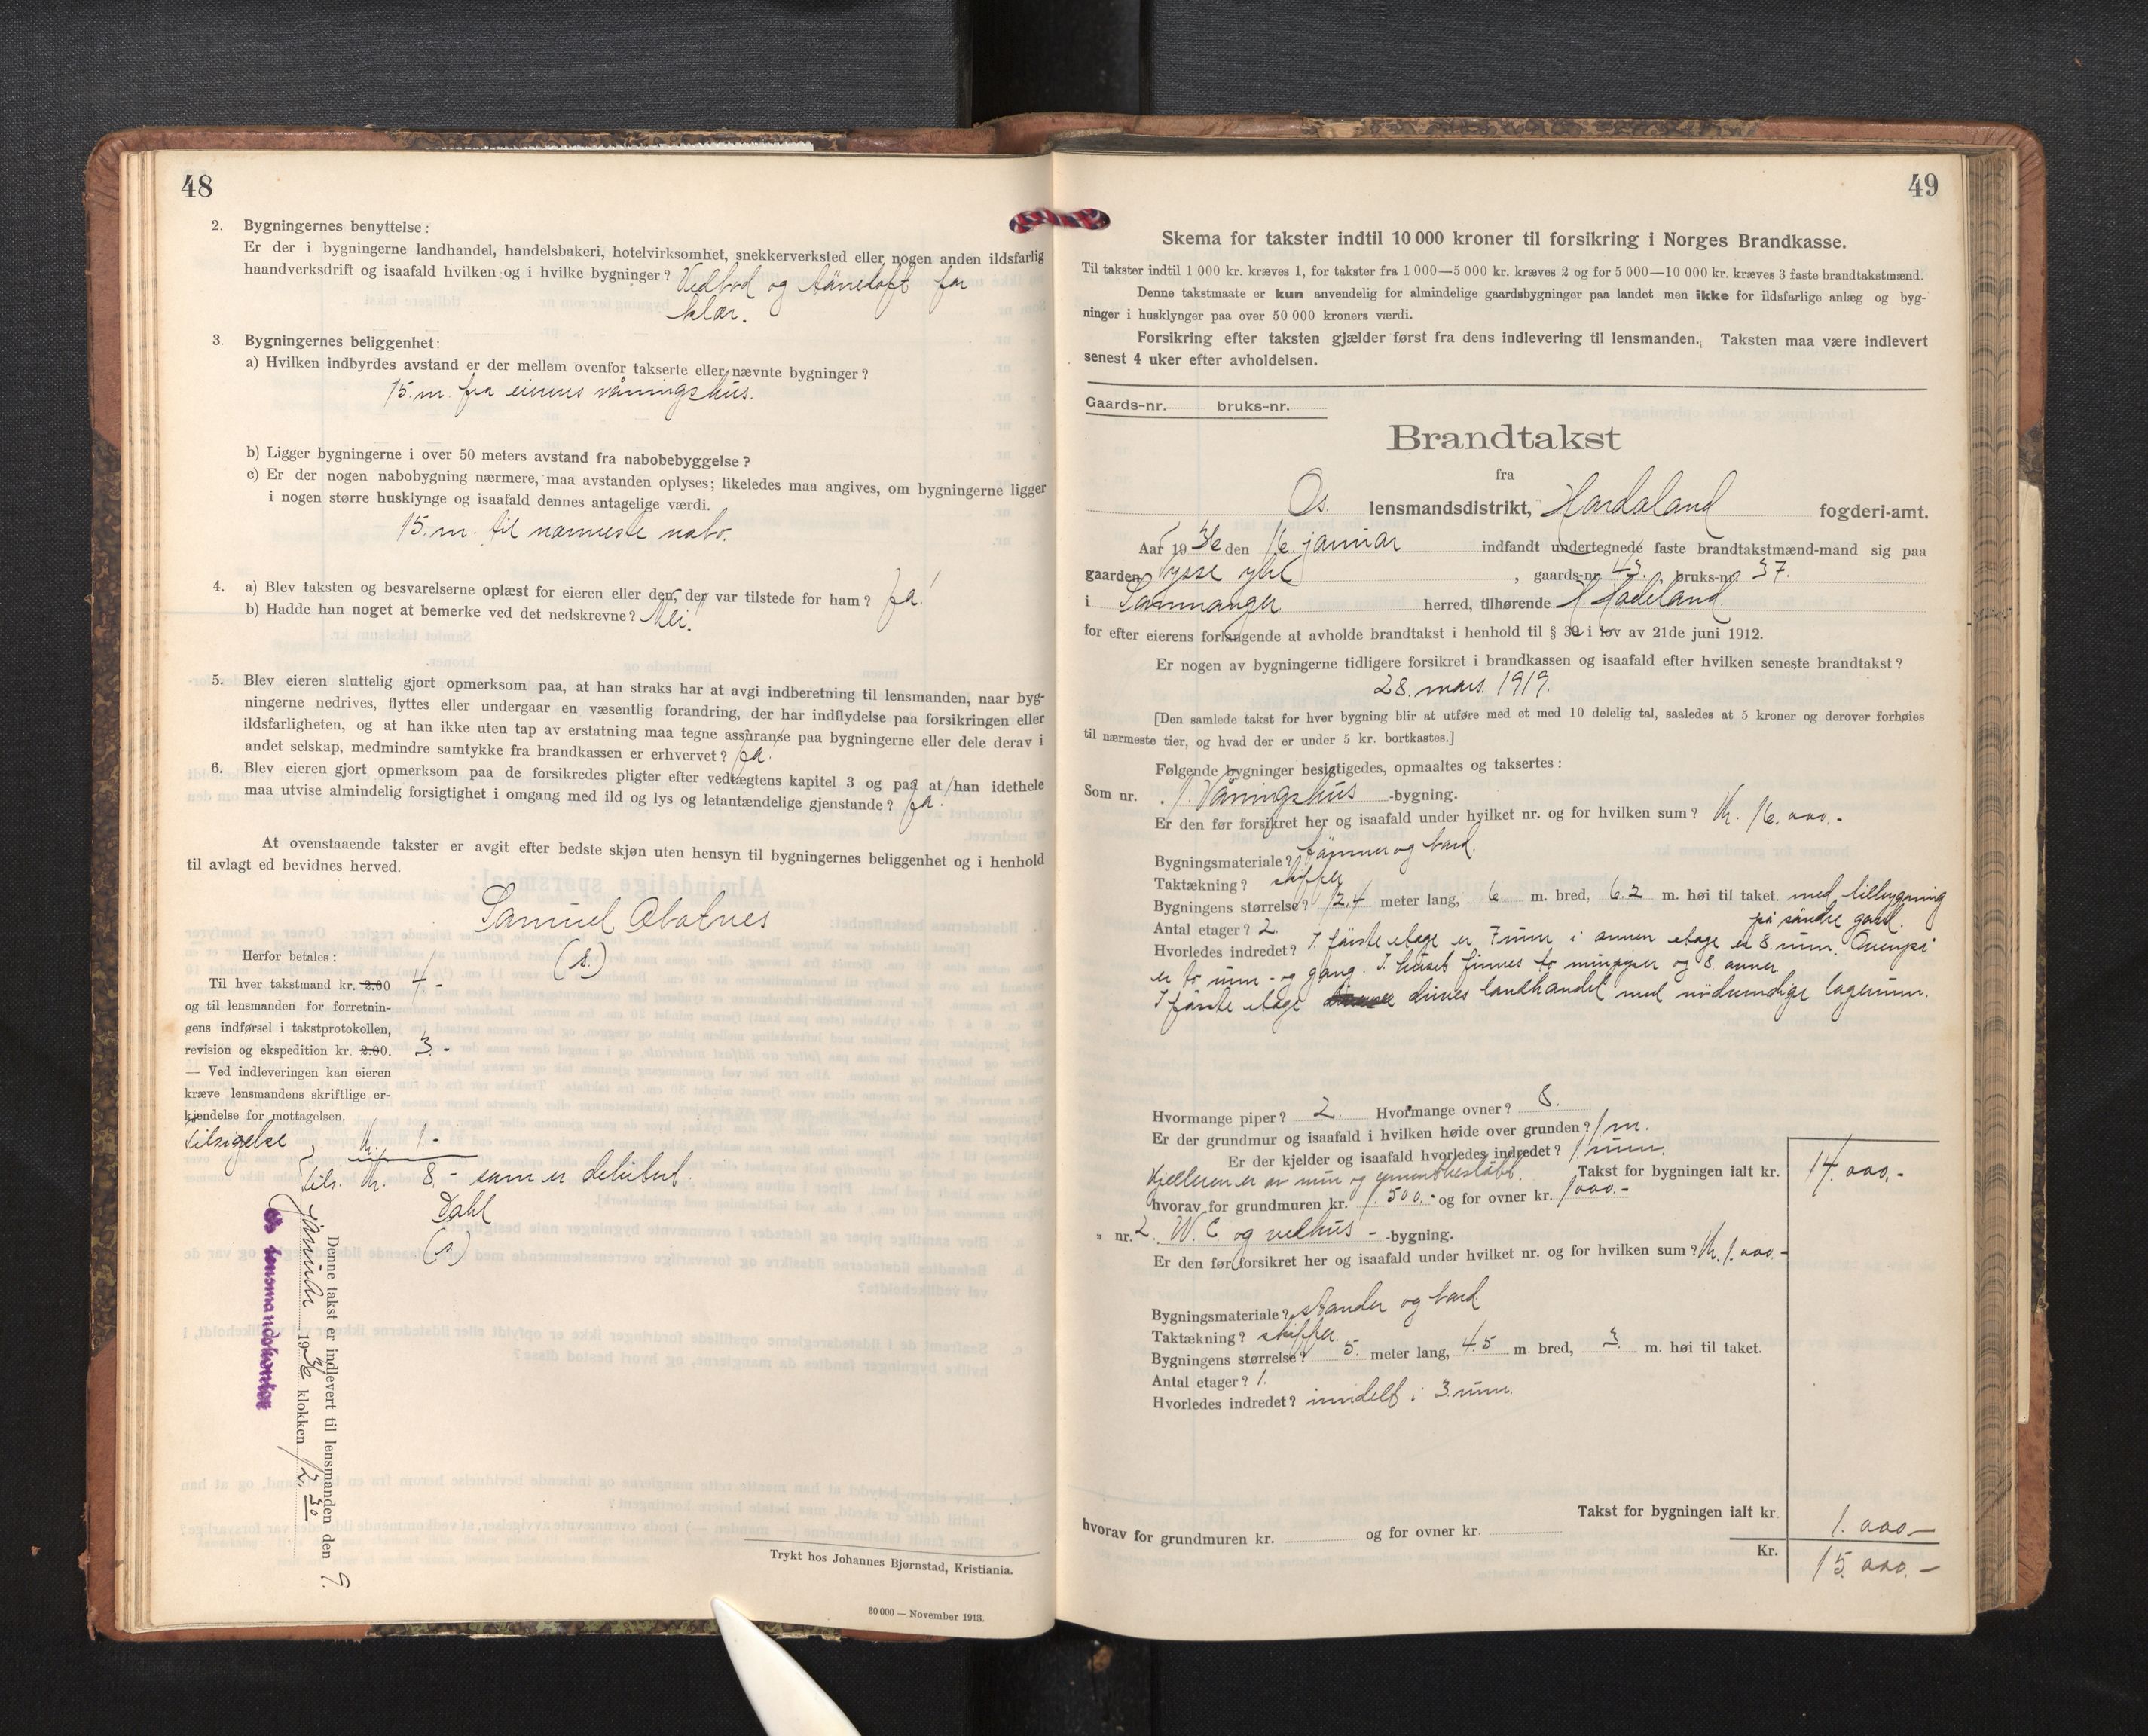 48
2. Bygningernes benyttelse:
Er der i bygningerne landhandel, handelsbakeri, hotelvirksomhet, snekkerverksted eller nogen anden ildsfarlig
haandverksdrift og isaafald hvilken og i hvilke bygninger? Vedbod og for
klær.
3. Bygningernes beliggenhet:
a) Hvilken indbyrdes avstand er der mellem ovenfor takserte eller nævnte bygninger?
15. m. fra eierens våningshus.
b) Ligger bygningerne i over 50 meters avstand fra nabobebyggelse?
c) Er der nogen nabobygning nærmere, maa avstanden oplyses; likeledes maa angives, om bygningerne ligger
i nogen større husklynge og isaafald dennes antagelige værdi.
15. m. til nærmeste nabo.
4. a) Blev taksten og besvarelserne oplæst for eieren eller den, der var tilstede for ham? Ja!
b) Hadde han noget at bemerke ved det nedskrevne? Nei!
5. Blev eieren sluttelig gjort opmerksom paa, at han straks har at avgi indberetning til lensmanden, naar byg-
ningerne nedrives, flyttes eller undergaar en væsentlig forandring, der har indflydelse paa forsikringen eller
ildsfarligheten, og at han ikke uten tap av erstatning maa tegne assuranse paa bygningerne eller dele derav i
andet selskap, medmindre samtykke fra brandkassen er erhvervet? Ja!
6. Blev eieren gjort opmerksom paa de forsikredes pligter efter vedtægtens kapitel 3 og paa at han idethele
maa utvise almindelig forsigtighet i omgang med ild og lys og letantændelige gjenstande? Ja.
At ovenstaaende takster er avgit efter bedste skjøn uten hensyn til bygningernes beliggenhet og i henhold
til avlagt ed bevidnes herved.
Samuel
(s.)
Herfor betales:
Til hver takstmand kr. 2.00 4.-
og til lensmanden for forretnin-
gens indførsel i takstprotokollen,
revision og ekspedition kr. 2.00. 3.-
— Ved indleveringen kan eieren
kræve lensmandens skriftlige er-
kjendelse for mottagelsen.
Tilsigelse Kr. 1.-
Tils. Kr. 8.- som er debitert.
Dahl
(s)
Denne takst er indlevert til lensmanden den 9.
januar 1936 klokken 12.30
Os lensmandskontor
Trykt hos Johannes Bjørnstad, Kristiania.
30 000 — November 1913.
49
Skema for takster indtil 10 000 kroner til forsikring i Norges Brandkasse.
Til takster indtil 1 000 kr. kræves 1, for takster fra 1 000—5 000 kr. kræves 2 og for 5 000—10 000 kr. kræves 3 faste brandtakstmænd.
Denne takstmaate er kun anvendelig for almindelige gaardsbygninger paa landet men ikke for ildsfarlige anlæg og byg-
ninger i husklynger paa over 50 000 kroners værdi.
Forsikring efter taksten gjælder først fra dens indlevering til lensmanden. Taksten maa være indlevert
senest 4 uker efter avholdelsen.
Gaards-nr. bruks-nr.
Brandtakst
fra
Os. lensmandsdistrikt, Hordaland fogderi-amt.
Aar 1936 den 16. januar indfandt undertegnede faste brandtakstmænd-mand sig paa
gaarden Tysse ytre, gaards-nr. 43. bruks-no. 37.
i Samnanger herred, tilhørende H. Hadeland.
for efter eierens forlangende at avholde brandtakst i henhold til § 30 i lov av 21de juni 1912.
Er nogen av bygningerne tidligere forsikret i brandkassen og isaafald efter hvilken seneste brandtakst?
28. mars. 1919.
[Den samlede takst for hver bygning blir at utføre med et med 10 delelig tal, saaledes at 5 kroner og derover forhøies
til nærmeste tier, og hvad der er under 5 kr. bortkastes.]
Følgende bygninger besigtigedes, opmaaltes og taksertes:
Som nr. 1. Våningshus -bygning.
Er den før forsikret her og isaafald under hvilket nr. og for hvilken sum? Kr. 16.000.-
Bygningsmateriale? tømmer og bord.
Taktækning? skiffer
Bygningens størrelse? 12.4 meter lang, 6. m. bred, 6.2 m. høi til taket. med tilbygning
Antal etager? 2. på søndre gavl.
Hvorledes indredet? I første etage er 7 rum i annen etage er 8. rum.
er to rum og gang. I huset finnes to murpiper og 8. ovner.
I første etage drives landhandel med nødvendige lagerrum.
Hvormange piper? 2. Hvormange ovner? 8.
Er der grundmur og isaafald i hvilken høide over grunden? 1 m.
Er der kjelder og isaafald hvorledes indredet? 1 rum.
Kjelleren er av mur og cementbestøbt. Takst for bygningen ialt kr. 14.000.-
hvorav for grundmuren kr. 1.500.- og for ovner kr. 1000.-
„ nr. 2. W.C. og vedhus - -bygning.
Er den før forsikret her og isaafald under hvilket nr. og for hvilken sum? Kr. 1.000.-
Bygningsmateriale? stander og bord
Taktækning? skiffer.
Bygningens størrelse? 5. meter lang, 4.5 m. bred, 3. m. høi til taket.
Antal etager? 1.
Hvorledes indredet? inndelt i 3 rum.
Takst for bygningen ialt kr. 1.000.-
hvorav for grundmuren kr. og for ovner kr.
Kr. 15.000.-